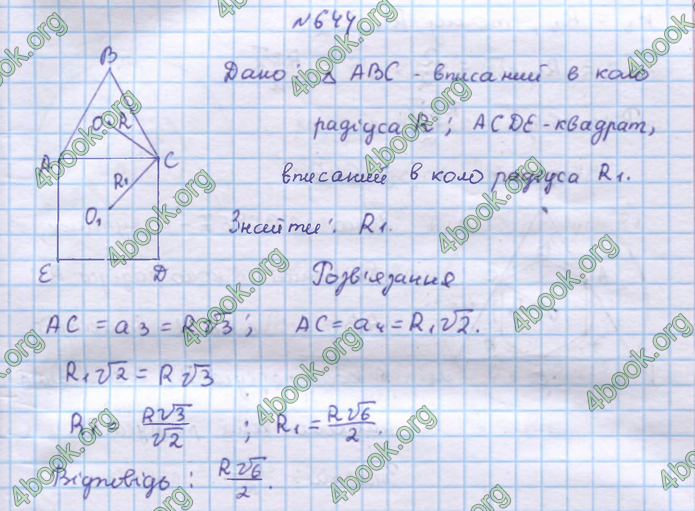 №644
Дано: △ ABC - вписаний в коло
радіуса R; ACDE - квадрат,
вписаний в коло радіуса R₁.
Знайти: R₁.
Розв'язання
B
O R
A C
R₁
O₁
E D
AC = a₃ = R√3; AC = a₄ = R₁√2.
R₁√2 = R√3
R₁ = R√3/√2; R₁ = R√6/2.
Відповідь: R√6/2.
4book.org